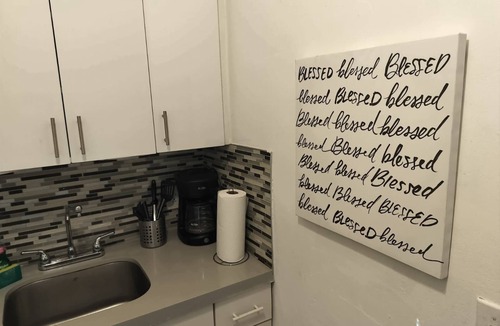 BLESSED blessed BLESSED
blessed BLESSED blessed
Blessed blessed blessed
blessed Blessed blessed
Blessed blessed Blessed
blessed Blessed BLESSED
blessed BLESSED blessed